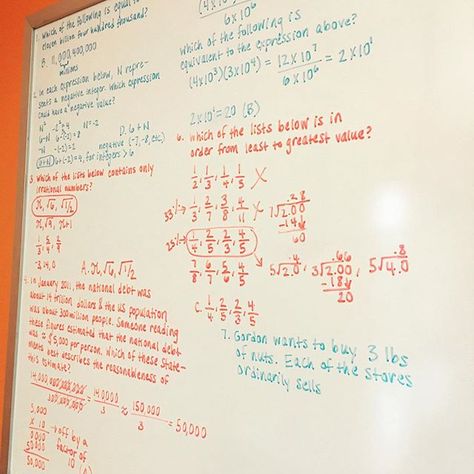 1. Which of the following is equal to
eleven billion four hundred thousand?
B. 11,000,400,000
billions
millions
2. In each expression below, N repre-
sents a negative integer. Which expression
could have a negative value?
N²
N=-2
6-N
6-(-2)=8
-N
6+N
D. 6+N
negative (-7,-8, etc.)
6+(-2)=4, for integers > 6
3. Which of the lists below contains only
irrational numbers?
π, √6, √1/2
π, √9, π+1
1/3, 5/4, 5/9
-3, 14, 0
A. π, √6, √1/2
4. In January 2011, the national debt was
about 14 trillion dollars & the US population
was about 300 million people. Someone reading
these figures estimated that the national debt
was ≈ $5,000 per person. Which of these state-
ments best describes the reasonableness of
this estimate?
14,000,000,000,000/300,000,000 = 140,000/3 ≈ 150,000/3 = 50,000
5,000
x 10
0000
50,000
→ off by a
factor of
10
6x10⁶
Which of the following is
equivalent to the expression above?
(4x10³)(3x10⁴) = 12x10⁷/6x10⁶ = 2x10¹
2x10¹=20 (B)
6. Which of the lists below is in
order from least to greatest value?
1/2, 1/3, 1/4, 1/5 X
33% → 1/3, 2/7, 3/8, 4/11 X
25% → 1/4, 2/5, 2/3, 4/5
7/8, 6/7, 5/6, 4/5
.28
7√2.00
-14
60
5√2.0
.66
3√2.00
-18
20
.8
5√4.0
C. 1/4, 2/5, 2/3, 4/5
7. Gordon wants to buy 3 lbs
of nuts. Each of the stores
ordinarily sells